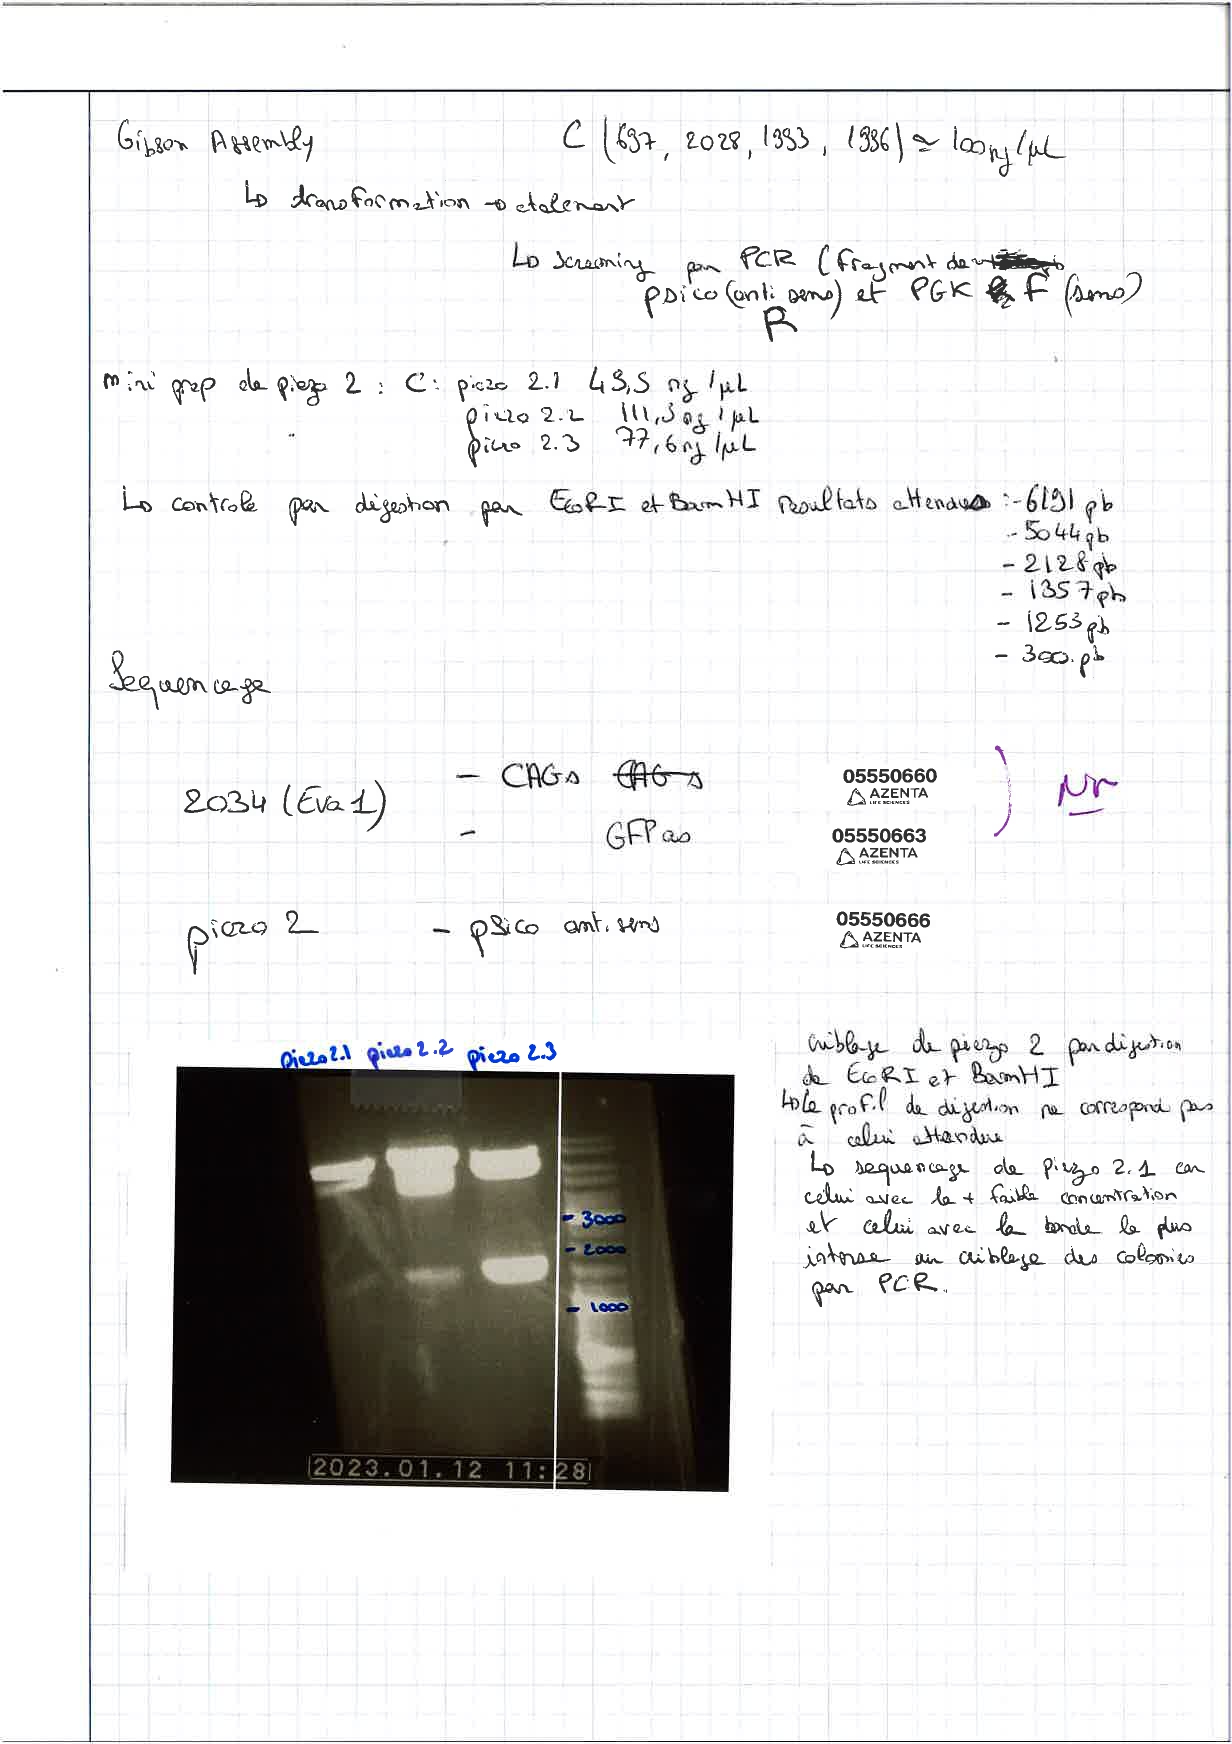 Gibson Assembly C (697, 2028, 1993, 1996) ≃ 100 ng/µL
↳ transformation → etalement
↳ screening par PCR (fragment de
psico (anti sens) et PGK F (sens)
R
mini prep de piezo 2 : C: piezo 2.1 49,5 ng/µL
piezo 2.2 111,3 ng/µL
piezo 2.3 77,6 ng/µL
↳ controle par digestion par EcoRI et BamHI resultats attendus : - 6191 pb
- 5044 pb
- 2128 pb
- 1357 pb
- 1253 pb
- 300 pb
Sequencage
2034 (Eva 1) - CAGs CAGs 05550660
AZENTA
LIFE SCIENCES
- GFP as 05550663
AZENTA
LIFE SCIENCES
piezo 2 - pSico anti sens 05550666
AZENTA
LIFE SCIENCES
piezo2.1 piezo2.2 piezo2.3
- 3000
- 2000
- 1000
2023.01.12 11:28
criblage de piezo 2 par digestion
de EcoRI et BamHI
↳ le profil de digestion ne correspond pas
à celui attendue
↳ sequencage de piezo 2.1 car
celui avec la + faible concentration
et celui avec la bande la plus
intense au criblage des colonies
par PCR.